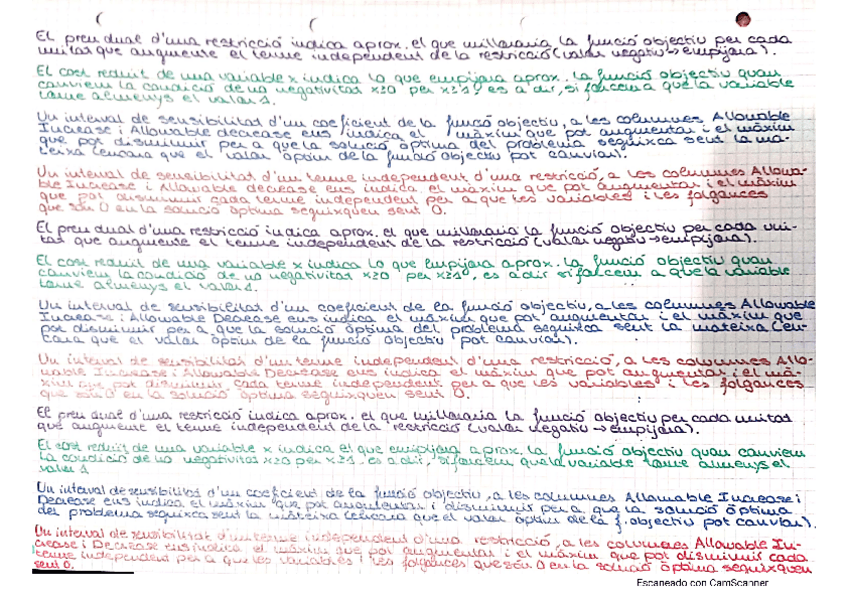 El preu dual d'una restricció indica aprox. el que milloraria la funció objectiu per cada
unitat que augmente el terme independent de la restricció (valor negatiu → empijora).
El cost reduït de una variable x indica lo que empijora aprox. la funció objectiu quan
canviem la condició de no negativitat x≥0 per x≥1, és a dir, si forcem a que la variable
tome almenys el valor 1.
Un interval de sensibilitat d'un coeficient de la funció objectiu, a les columnes Allowable
Increase i Allowable decrease ens indica el màxim que pot augmentar i el màxim
que pot disminuir per a que la solució òptima del problema seguixca sent la ma-
teixa (encara que el valor òptim de la funció objectiu pot canviar).
Un interval de sensibilitat d'un terme independent d'una restricció, a les columnes Allowa-
ble Increase i Allowable decrease ens indica el màxim que pot augmentar i el màxim
que pot disminuir cada terme independent per a que les variables i les folgances
que són 0 en la solució òptima seguixquen sent 0.
El preu dual d'una restricció indica aprox. el que milloraria la funció objectiu per cada uni-
tat que augmente el terme independent de la restricció (valor negatiu → empijora).
El cost reduït de una variable x indica lo que empijora aprox. la funció objectiu quan
canviem la condició de no negativitat x≥0 per x≥1, és a dir si forcem a que la variable
tome almenys el valor 1.
Un interval de sensibilitat d'un coeficient de la funció objectiu, a les columnes Allowable
Increase i Allowable Decrease ens indica el màxim que pot augmentar i el màxim que
pot disminuir per a que la solució òptima del problema seguixca sent la mateixa (en-
cara que el valor òptim de la funció objectiu pot canviar).
Un interval de sensibilitat d'un terme independent d'una restricció, a les columnes Allo-
wable Increase i Allowable Decrease ens indica el màxim que pot augmentar i el mà-
xim que pot disminuir cada terme independent per a que les variables i les folgances
que són 0 en la solució òptima seguixquen sent 0.
El preu dual d'una restricció indica aprox. el que milloraria la funció objectiu per cada unitat
que augmente el terme independent de la restricció (valor negatiu → empijora).
El cost reduït de una variable x indica el que empijora aprox. la funció objectiu quan canviem
la condició de no negativitat x≥0 per x≥1, és a dir, si forcem que la variable tome almenys el
valor 1
Un interval de sensibilitat d'un coeficient de la funció objectiu, a les columnes Allowable Increase i
Decrease ens indica el màxim que pot augmentar i disminuir per a que la solució òptima
del problema seguixca sent la mateixa (encara que el valor òptim de la f. objectiu pot canviar).
Un interval de sensibilitat d'un terme independent d'una restricció, a les columnes Allowable In-
crease i Decrease ens indica el màxim que pot augmentar i el màxim que pot disminuir cada
terme independent per a que les variables i les folgances que són 0 en la solució òptima seguixquen
sent 0.
Escaneado con CamScanner